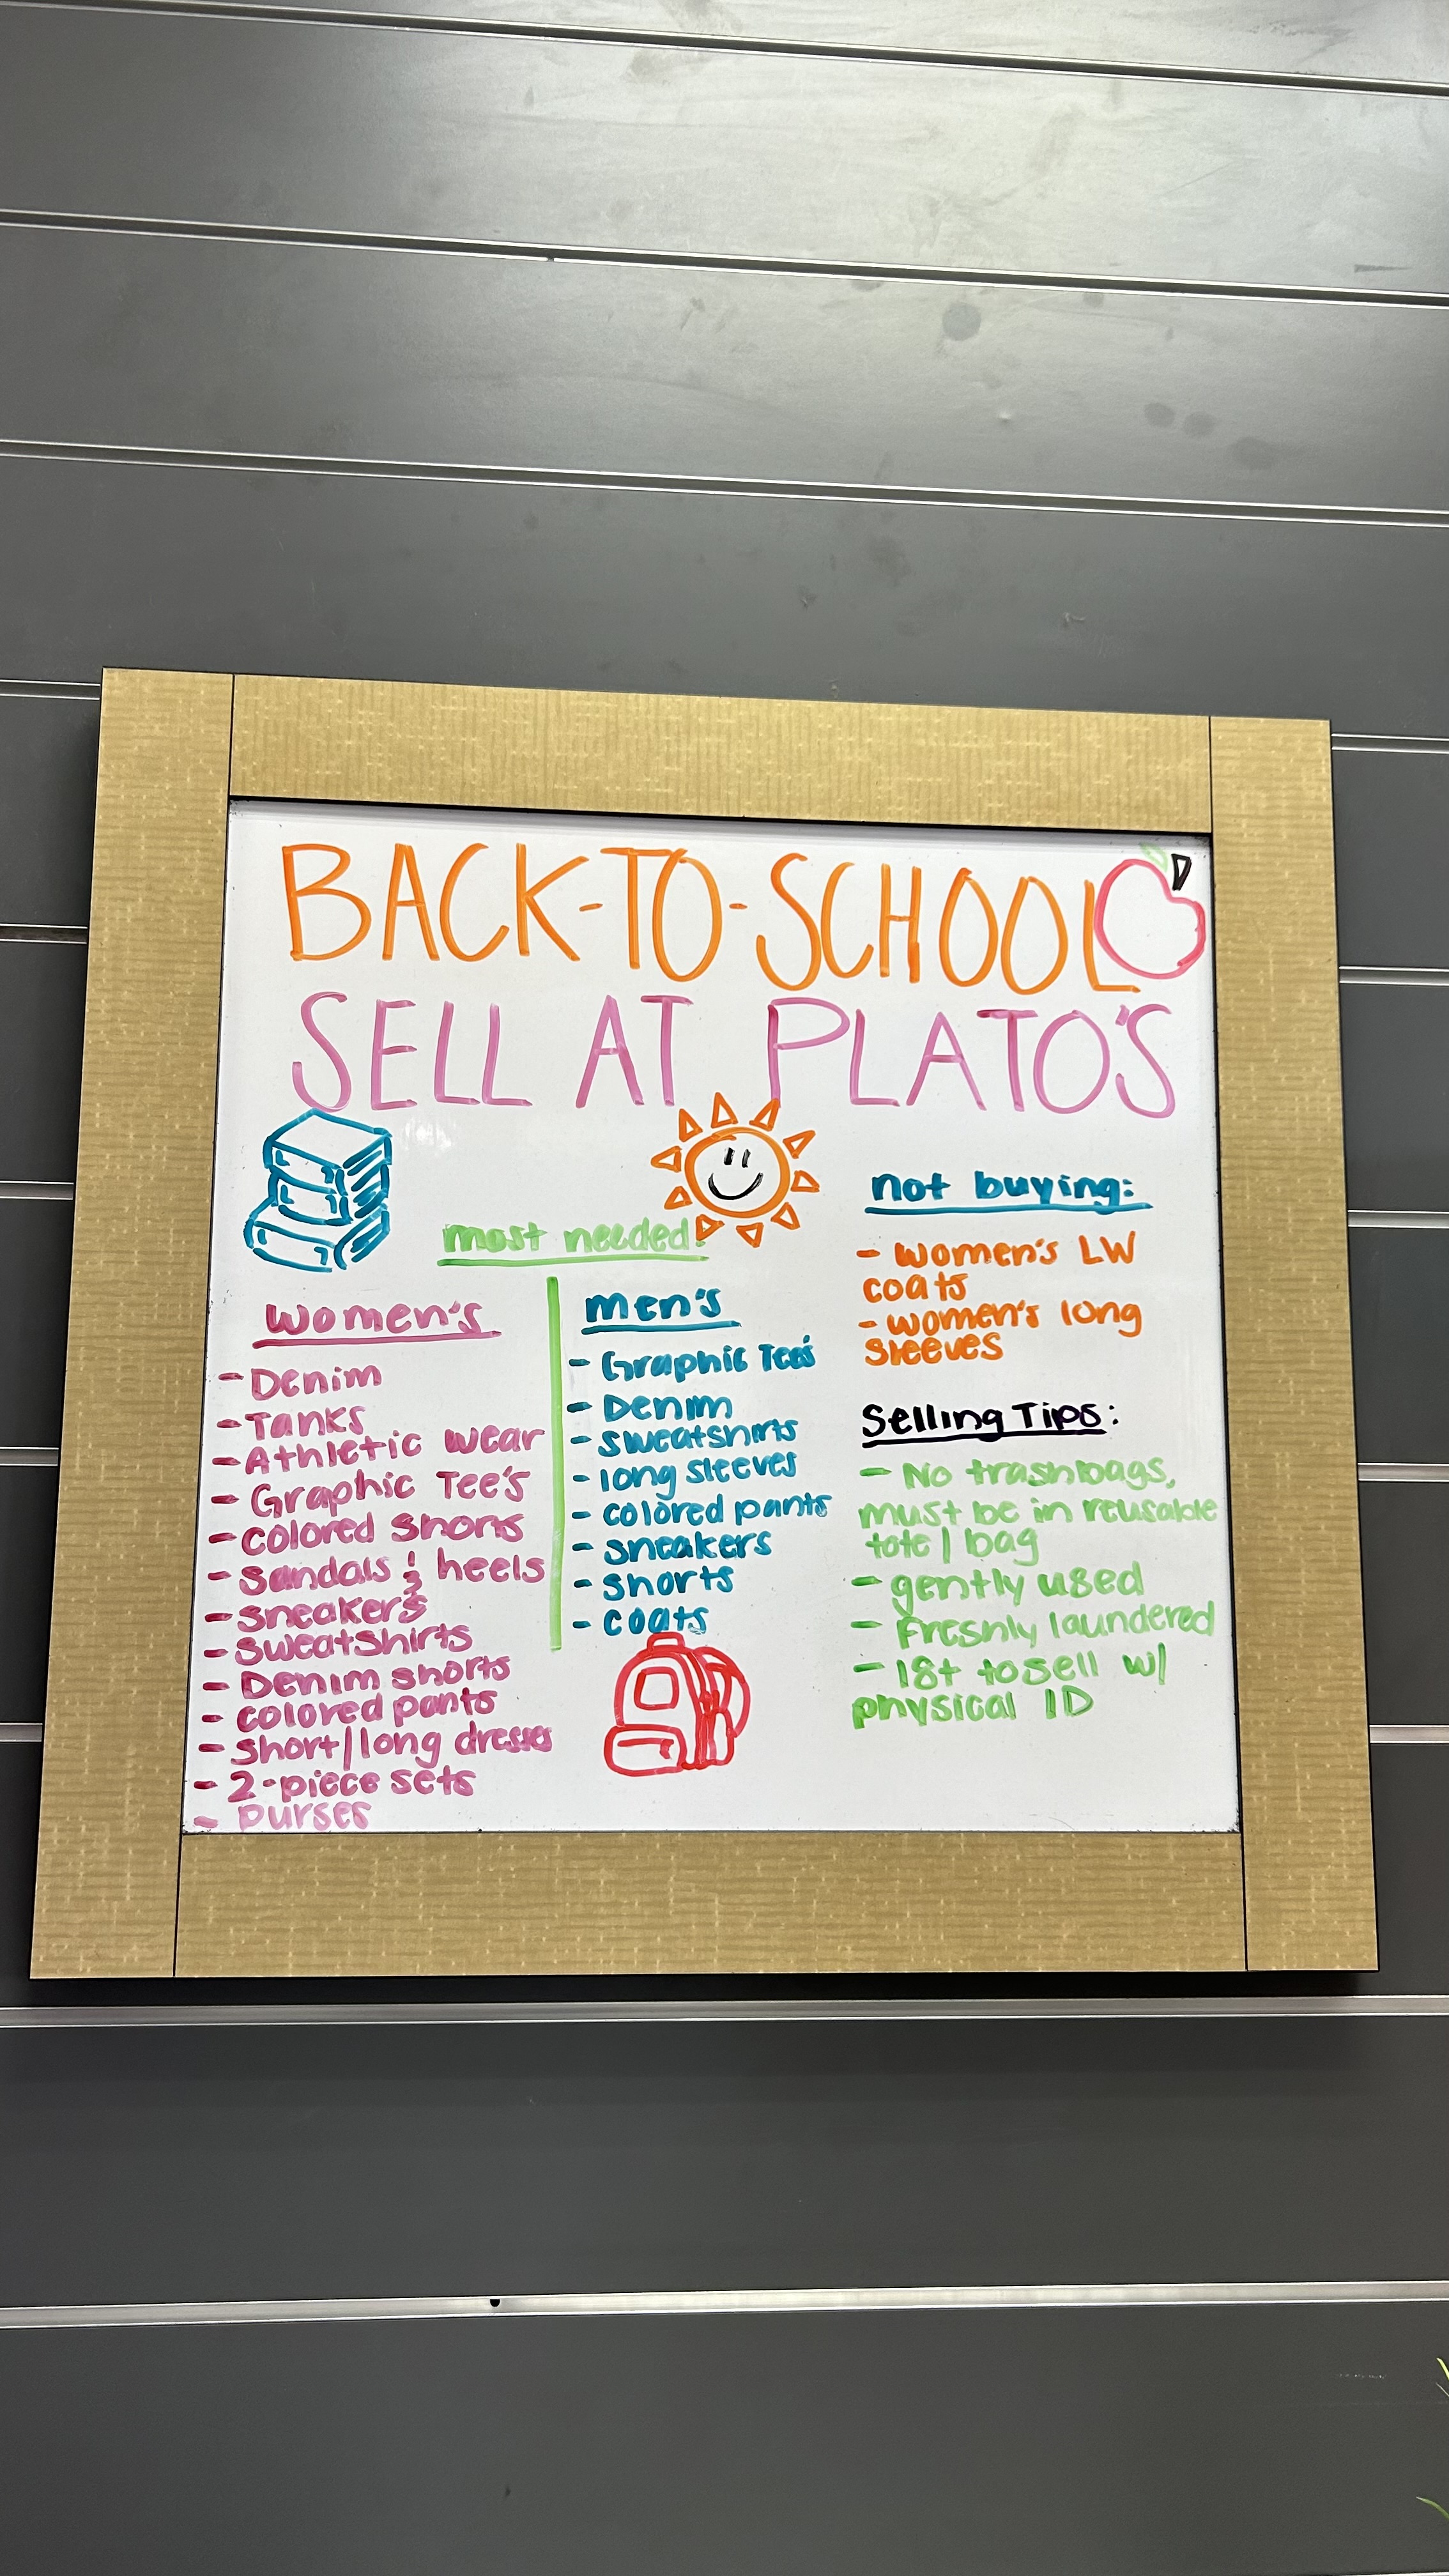 BACK-TO-SCHOOL
SELL AT PLATO'S
most needed!
women's
- Denim
- Tanks
- Athletic wear
- Graphic Tee's
- colored shorts
- sandals & heels
- sneakers
- sweatshirts
- Denim shorts
- colored pants
- short/long dresses
- 2-piece sets
- purses
men's
- Graphic Tees
- Denim
- sweatshirts
- long sleeves
- colored pants
- sneakers
- shorts
- coats
not buying:
- women's LW
coats
- women's long
sleeves
Selling Tips:
- No trashbags,
must be in reusable
tote/bag
- gently used
- Freshly laundered
- 18+ to sell w/
physical ID